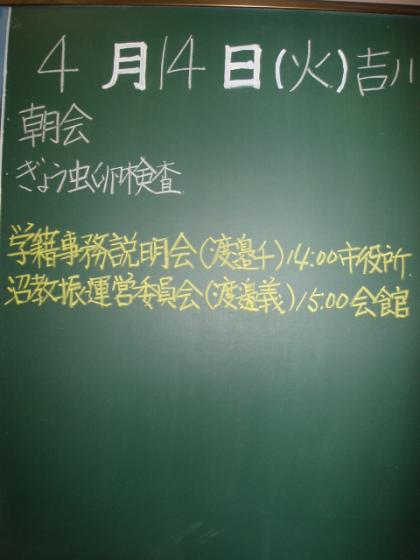 4月14日(火)吉川
朝会
ぎょう虫卵検査
学籍事務説明会(渡邉千)14:00市役所
沼教振運営委員会(渡邉義)15:00会館